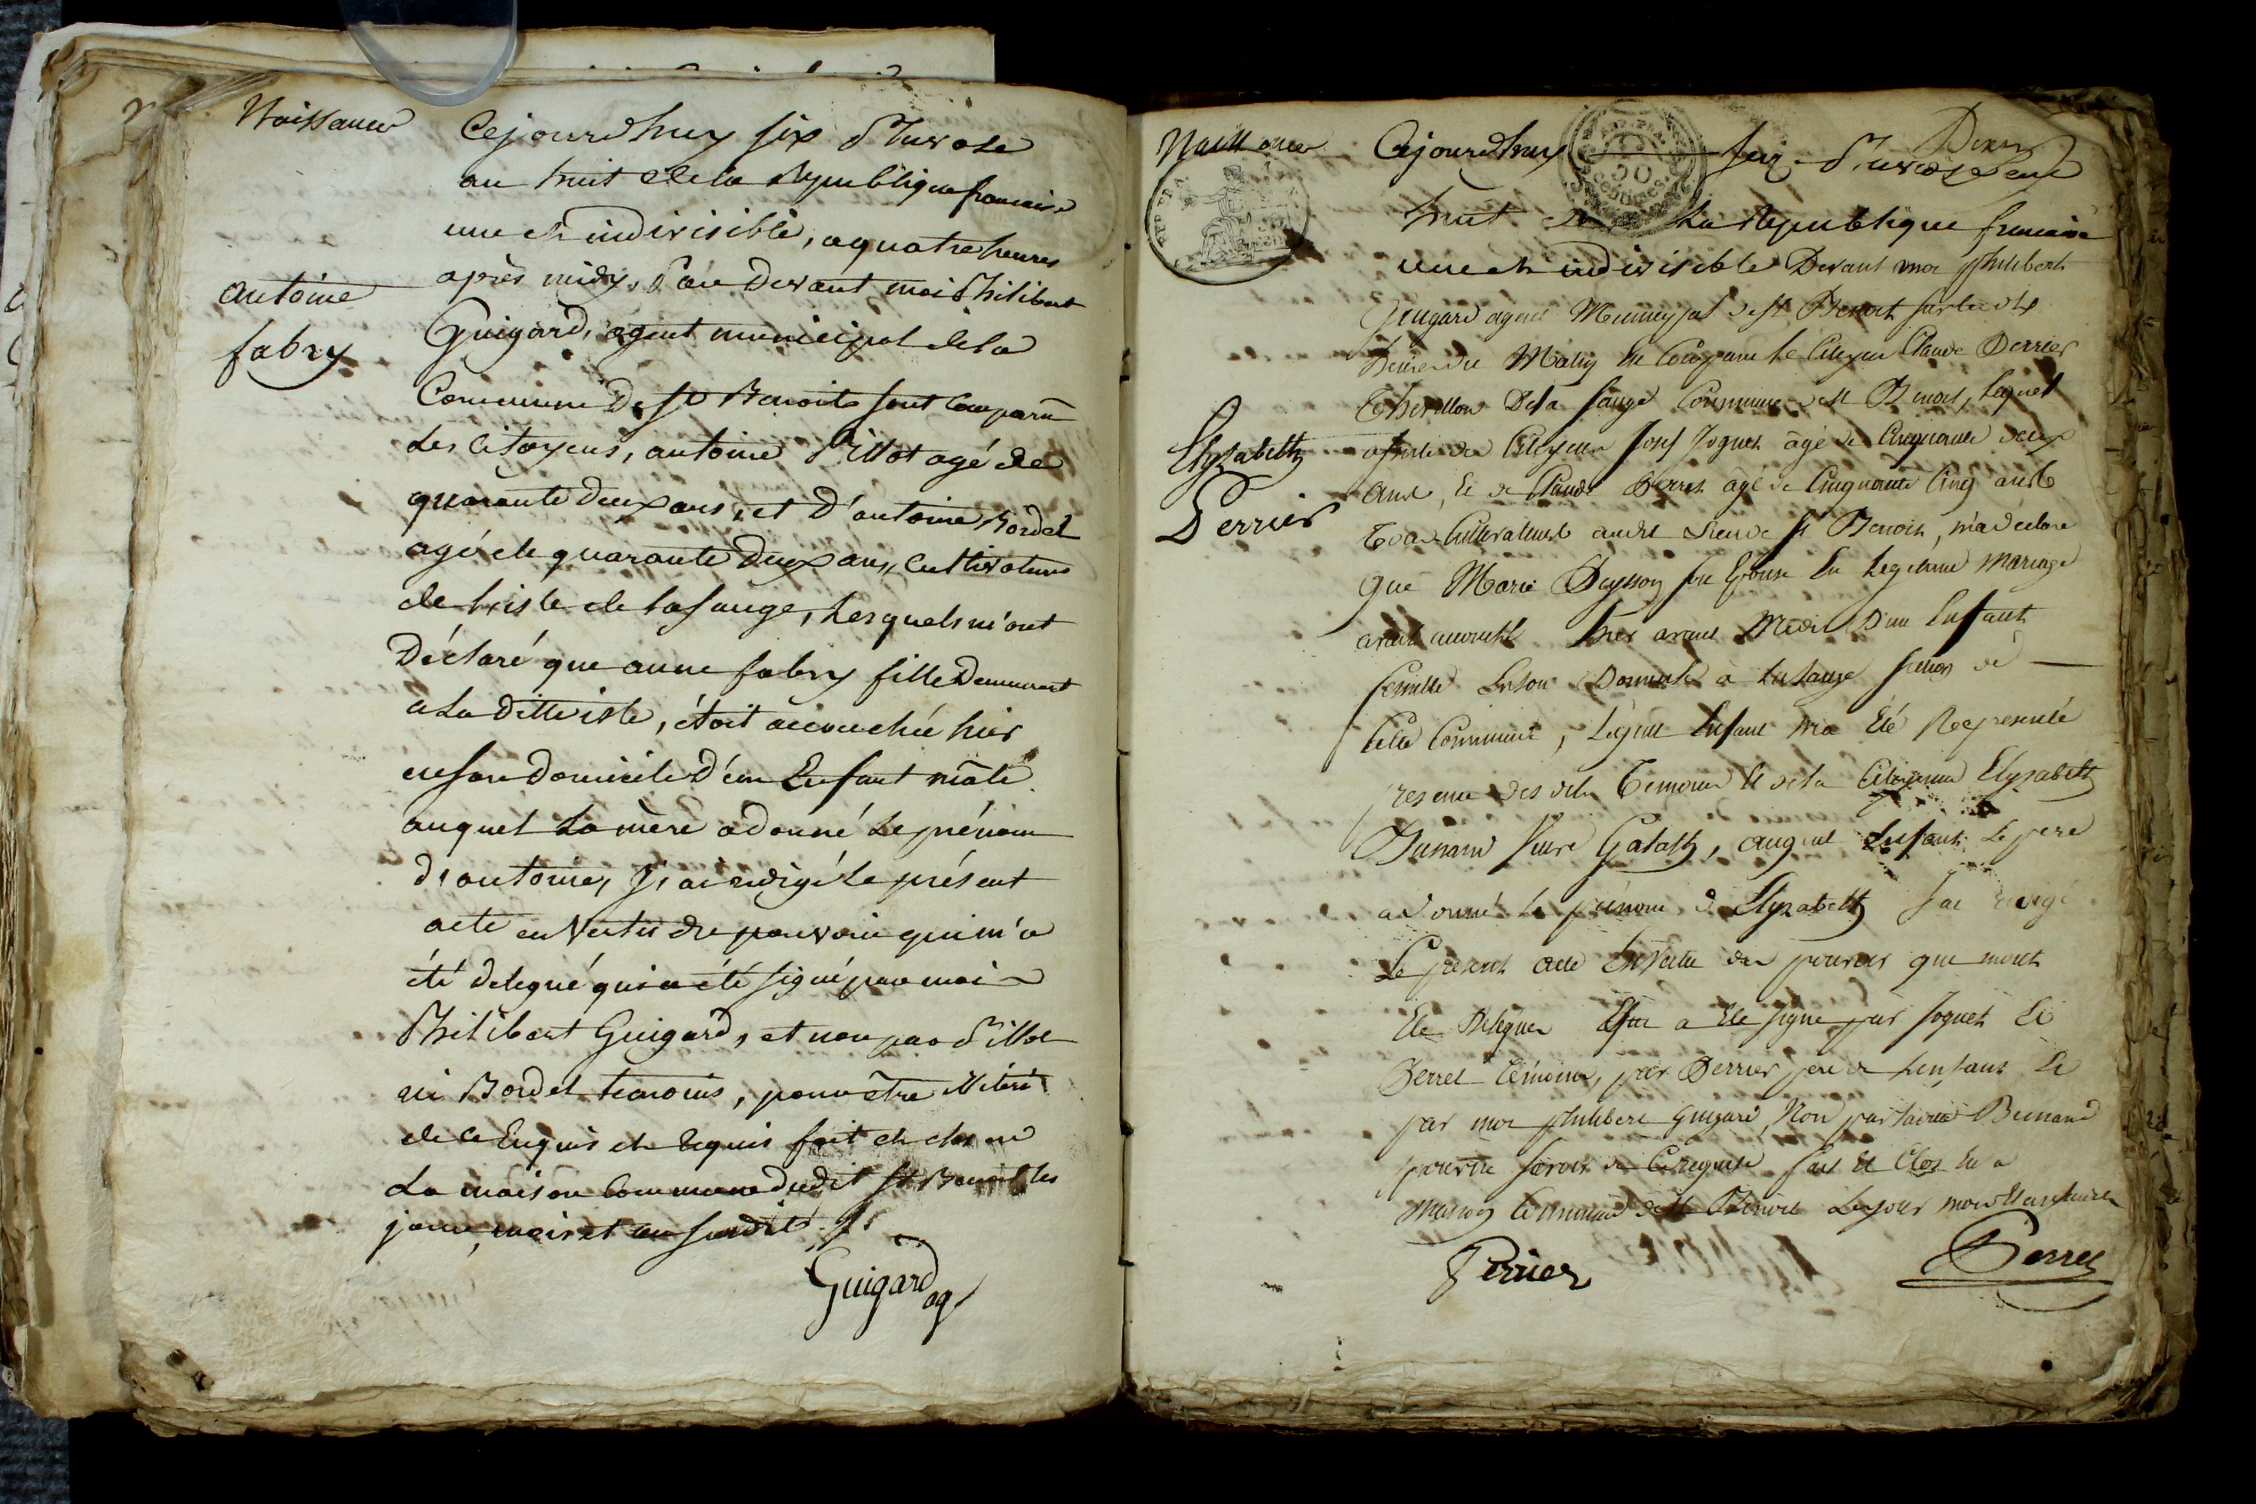 Naissance
antoine
fabry
Cejourdhuy six Pluviose
an huit de la République francaise
une et indivisible, a quatre heures
après midy, Par Devant moi Philibert
Guigard, agent municipal de la
Commune De St Benoit sont comparu
Les Citoyens, antoine Pillot agé de
quarante Deux ans, et D'antoine Bordel
agé de quarante Deux ans, cultivateurs
de L'isle de la sauge, Lesquels m'ont
Déclaré que anne fabry fille Demeurant
a La Ditte isle, étoit accouchée hier
en son Domicile D'un Enfant mâle
auquel La mère a donné Le prénom
D'antoine, J'ai redigé Le présent
acte en Vertu du pouvoir qui m'a
été délegué qui a été signé par moi
Philibert Guigard, et non par Pillot
ni Bordel temoins, pour être illiteré
de ce Enquis et Requis fait et clos en
La maison Commune dudit St Benoit les
jour, mois et an susdits
Guigard
ag
Naissance
Elyzabeth
Perrier
50
centimes
REP. FRA.
Cejourdhuy
huit de La République francaise
une et indivisible Devant moi philibert
Guigard agent Municipal de St Benoit sur les dix
heures du Matin En Comparu Le Citoyen Claude Perrier
De la Sauge Commune de St Benoit, Lequel
assisté du Citoyen Josef Joguet âgé de Cinquante deux
ans, Et de Claude Perret âgé de Cinquante Cinq ans
tous Cultivateurs audit Lieu de St Benoit, m'a declaré
que Marie son Epouse En Legitime Mariage
avait accouché hier avant Midi D'un Enfant
femelle En son Domicile à La Sauge de
Cette Commune, Lequel Enfant m'a Eté Representé
presence des dits Temoins Et de la Citoyenne Elyzabeth
, auquel Enfant Le pere
a donné Le prénom d Elyzabeth J'ai redigé
Le present acte En Vertu du pouvoir que m'ont
Eté Delegué Et a Eté signé par Joguet Et
Perret témoins, par Perrier pere de L'enfant Et
par moi philibert Guigard, Non par
pour ne savoir de Ce requise fait Et Clos En La
Maison Commune de St Benoit Le jour mois Et an
Perrier
Perret